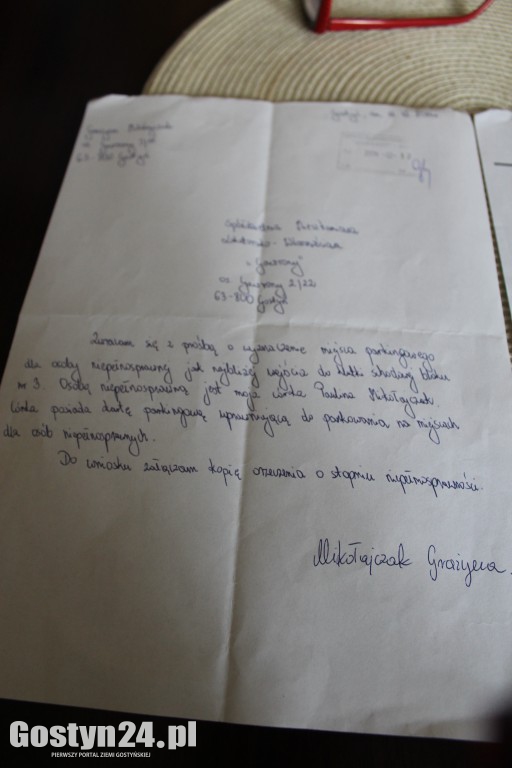 Grażyna Mikołajczak
63-800 Gostyń
Spółdzielnia Mieszkaniowa
"Gwarny"
63-800 Gostyń
Zwracam się z prośbą o wyznaczenie miejsca parkingowego
dla osoby niepełnosprawnej jak najbliżej wejścia do klatki schodowej bloku
nr 3. Osobą niepełnosprawną jest moja córka Paulina Mikołajczak.
Córka posiada kartę parkingową uprawniającą do parkowania na miejscach
dla osób niepełnosprawnych.
Do wniosku załączam kopię orzeczenia o stopniu niepełnosprawności.
Mikołajczak Grażyna
Gostyn24.pl
PIERWSZY PORTAL ZIEMI GOSTYŃSKIEJ